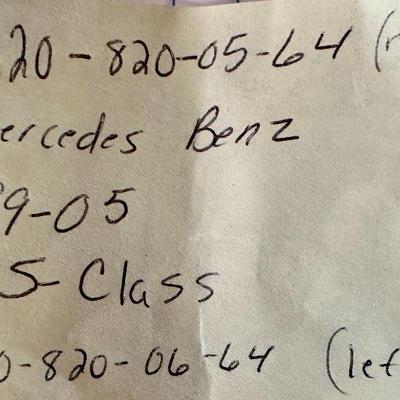 20-820-05-64 (r
ercedes Benz
9-05
S-Class
0-820-06-64 (lef